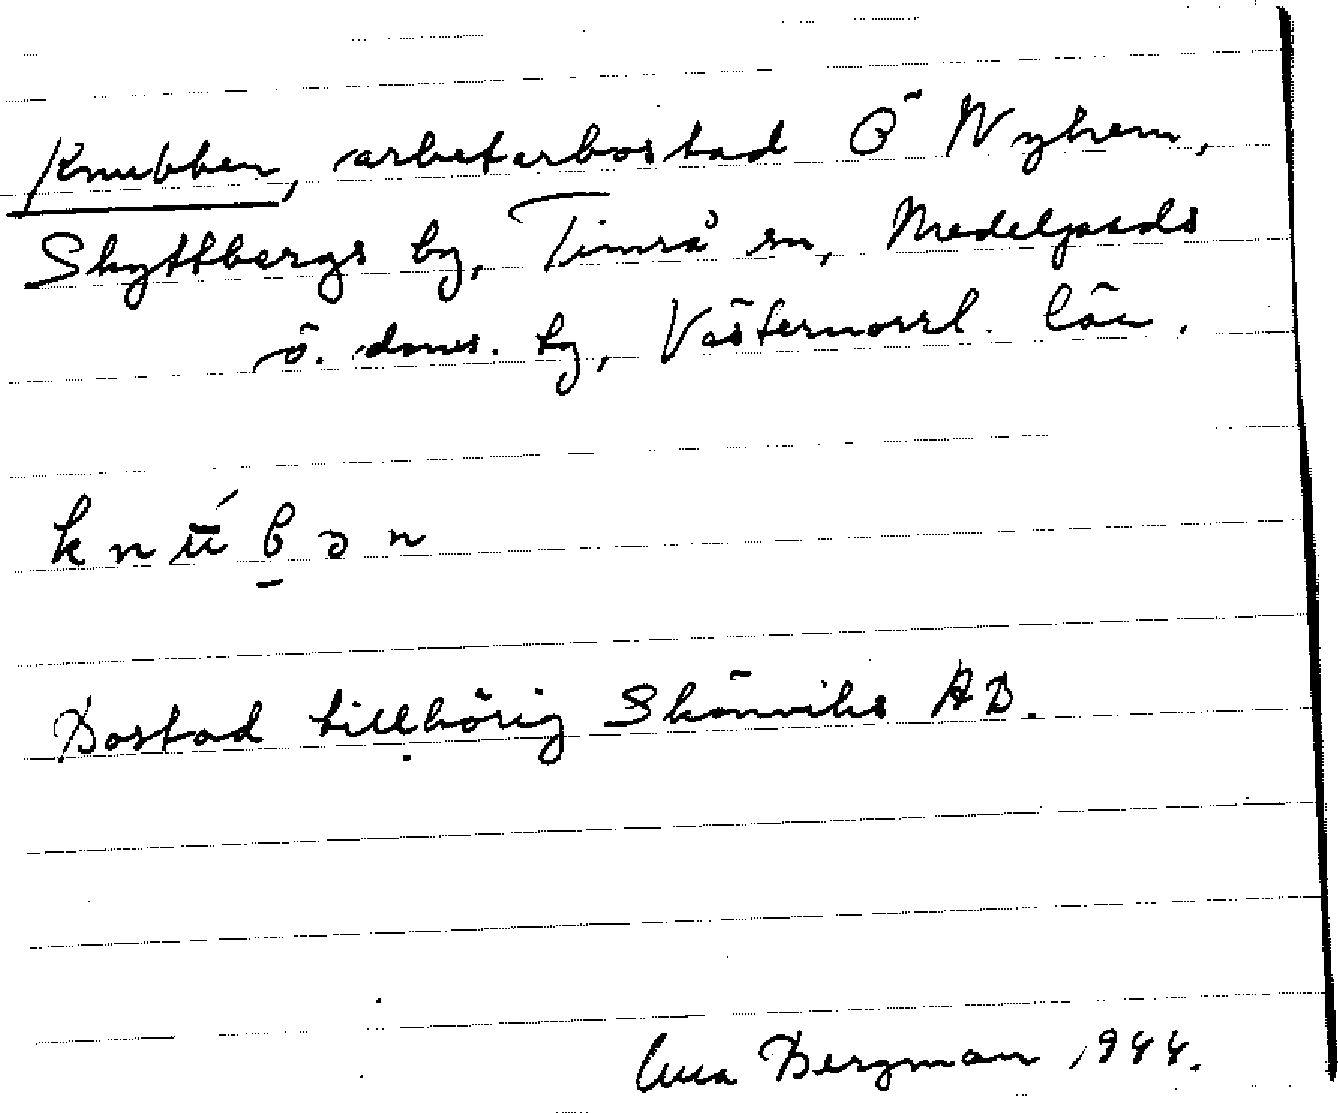 Knubben, arbetarbostad Ö Nyhem,
Skyttbergs by, Timrå sn, Medelpads
ö. doms. tg, Västernorrl. län.
knʉ́bən
Bostad tillhörig Skönviks AB.
Bergman 1944.